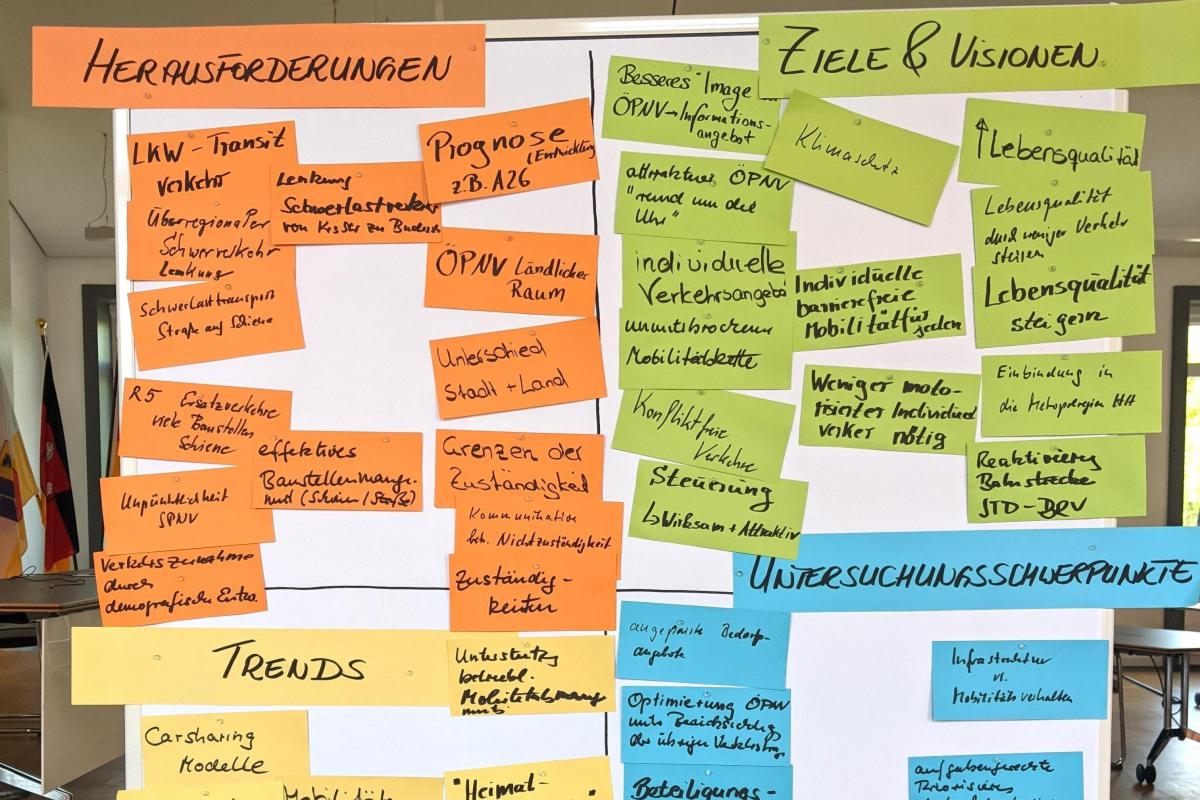 HERAUSFORDERUNGEN
LKW-Transit
verkehr
Überregionaler
Schwerverkehr
Lenkung
Schwerlasttransport
Straße auf Schiene
Lenkung
Schwerlastverkehr
von
zu
Prognose
(Entwicklung
z.B. A26
ÖPNV Ländlicher
Raum
Unterschied
Stadt + Land
R5 Ersatzverkehre
viele Baustellen
Schiene
effektives
Baustellenmanage-
ment (Schiene/Straße)
Unpünktlichkeit
SPNV
Verkehrszunahme
durch
demografische
Grenzen der
Zuständigkeit
Kommunikation
bzh. Nichtzuständigkeit
Zuständig-
keiten
ZIELE & VISIONEN
Besseres Image
ÖPNV→Informations-
angebot
attraktiver ÖPNV
"rund um die
Uhr"
individuelle
Verkehrsangebo
ununterbrochene
Mobilitätskette
Konfliktfreie
Verkehre
Steuerung
↳Wirksam + Attraktiv
Klimaschutz
Individuelle
barrierefreie
Mobilität für jeden
Weniger moto-
risierter Individual
verker nötig
↑Lebensqualität
Lebensqualität
durch weniger Verkehr
steigern
Lebensqualität
steigern
Einbindung in
die Metropolregion HH
Reaktivierung
Bahnstrecke
STD-BRV
TRENDS
Unterstützg
betriebl.
Mobilitätsmanage
ments
Carsharing
Modelle
Mobilitäts
"Heimat-
UNTERSUCHUNGSSCHWERPUNKTE
angepasste Bedarfs-
angebote
Optimierung ÖPNV
unter Berücksichtig
der übrigen
Beteiligungs-
Infrastruktur
vs.
Mobilitätsverhalten
aufgabengerechte